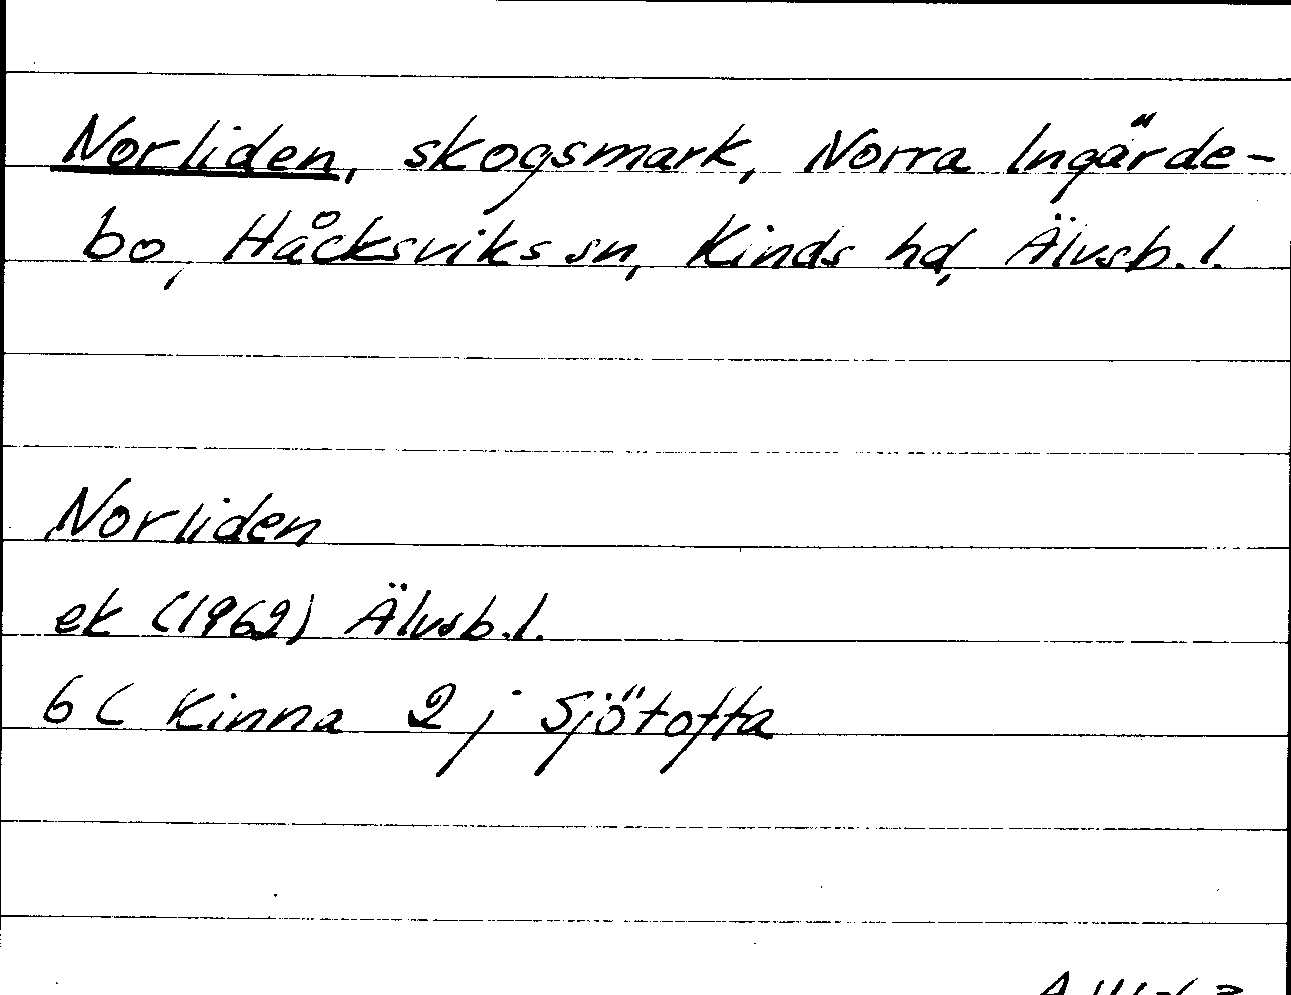 Norliden, skogsmark, Norra Ingärde-
bo, Håcksviks sn, Kinds hd, Älvsb. l.
Norliden
ek (1962) Älvsb. l.
6 C Kinna 2 j Sjötofta